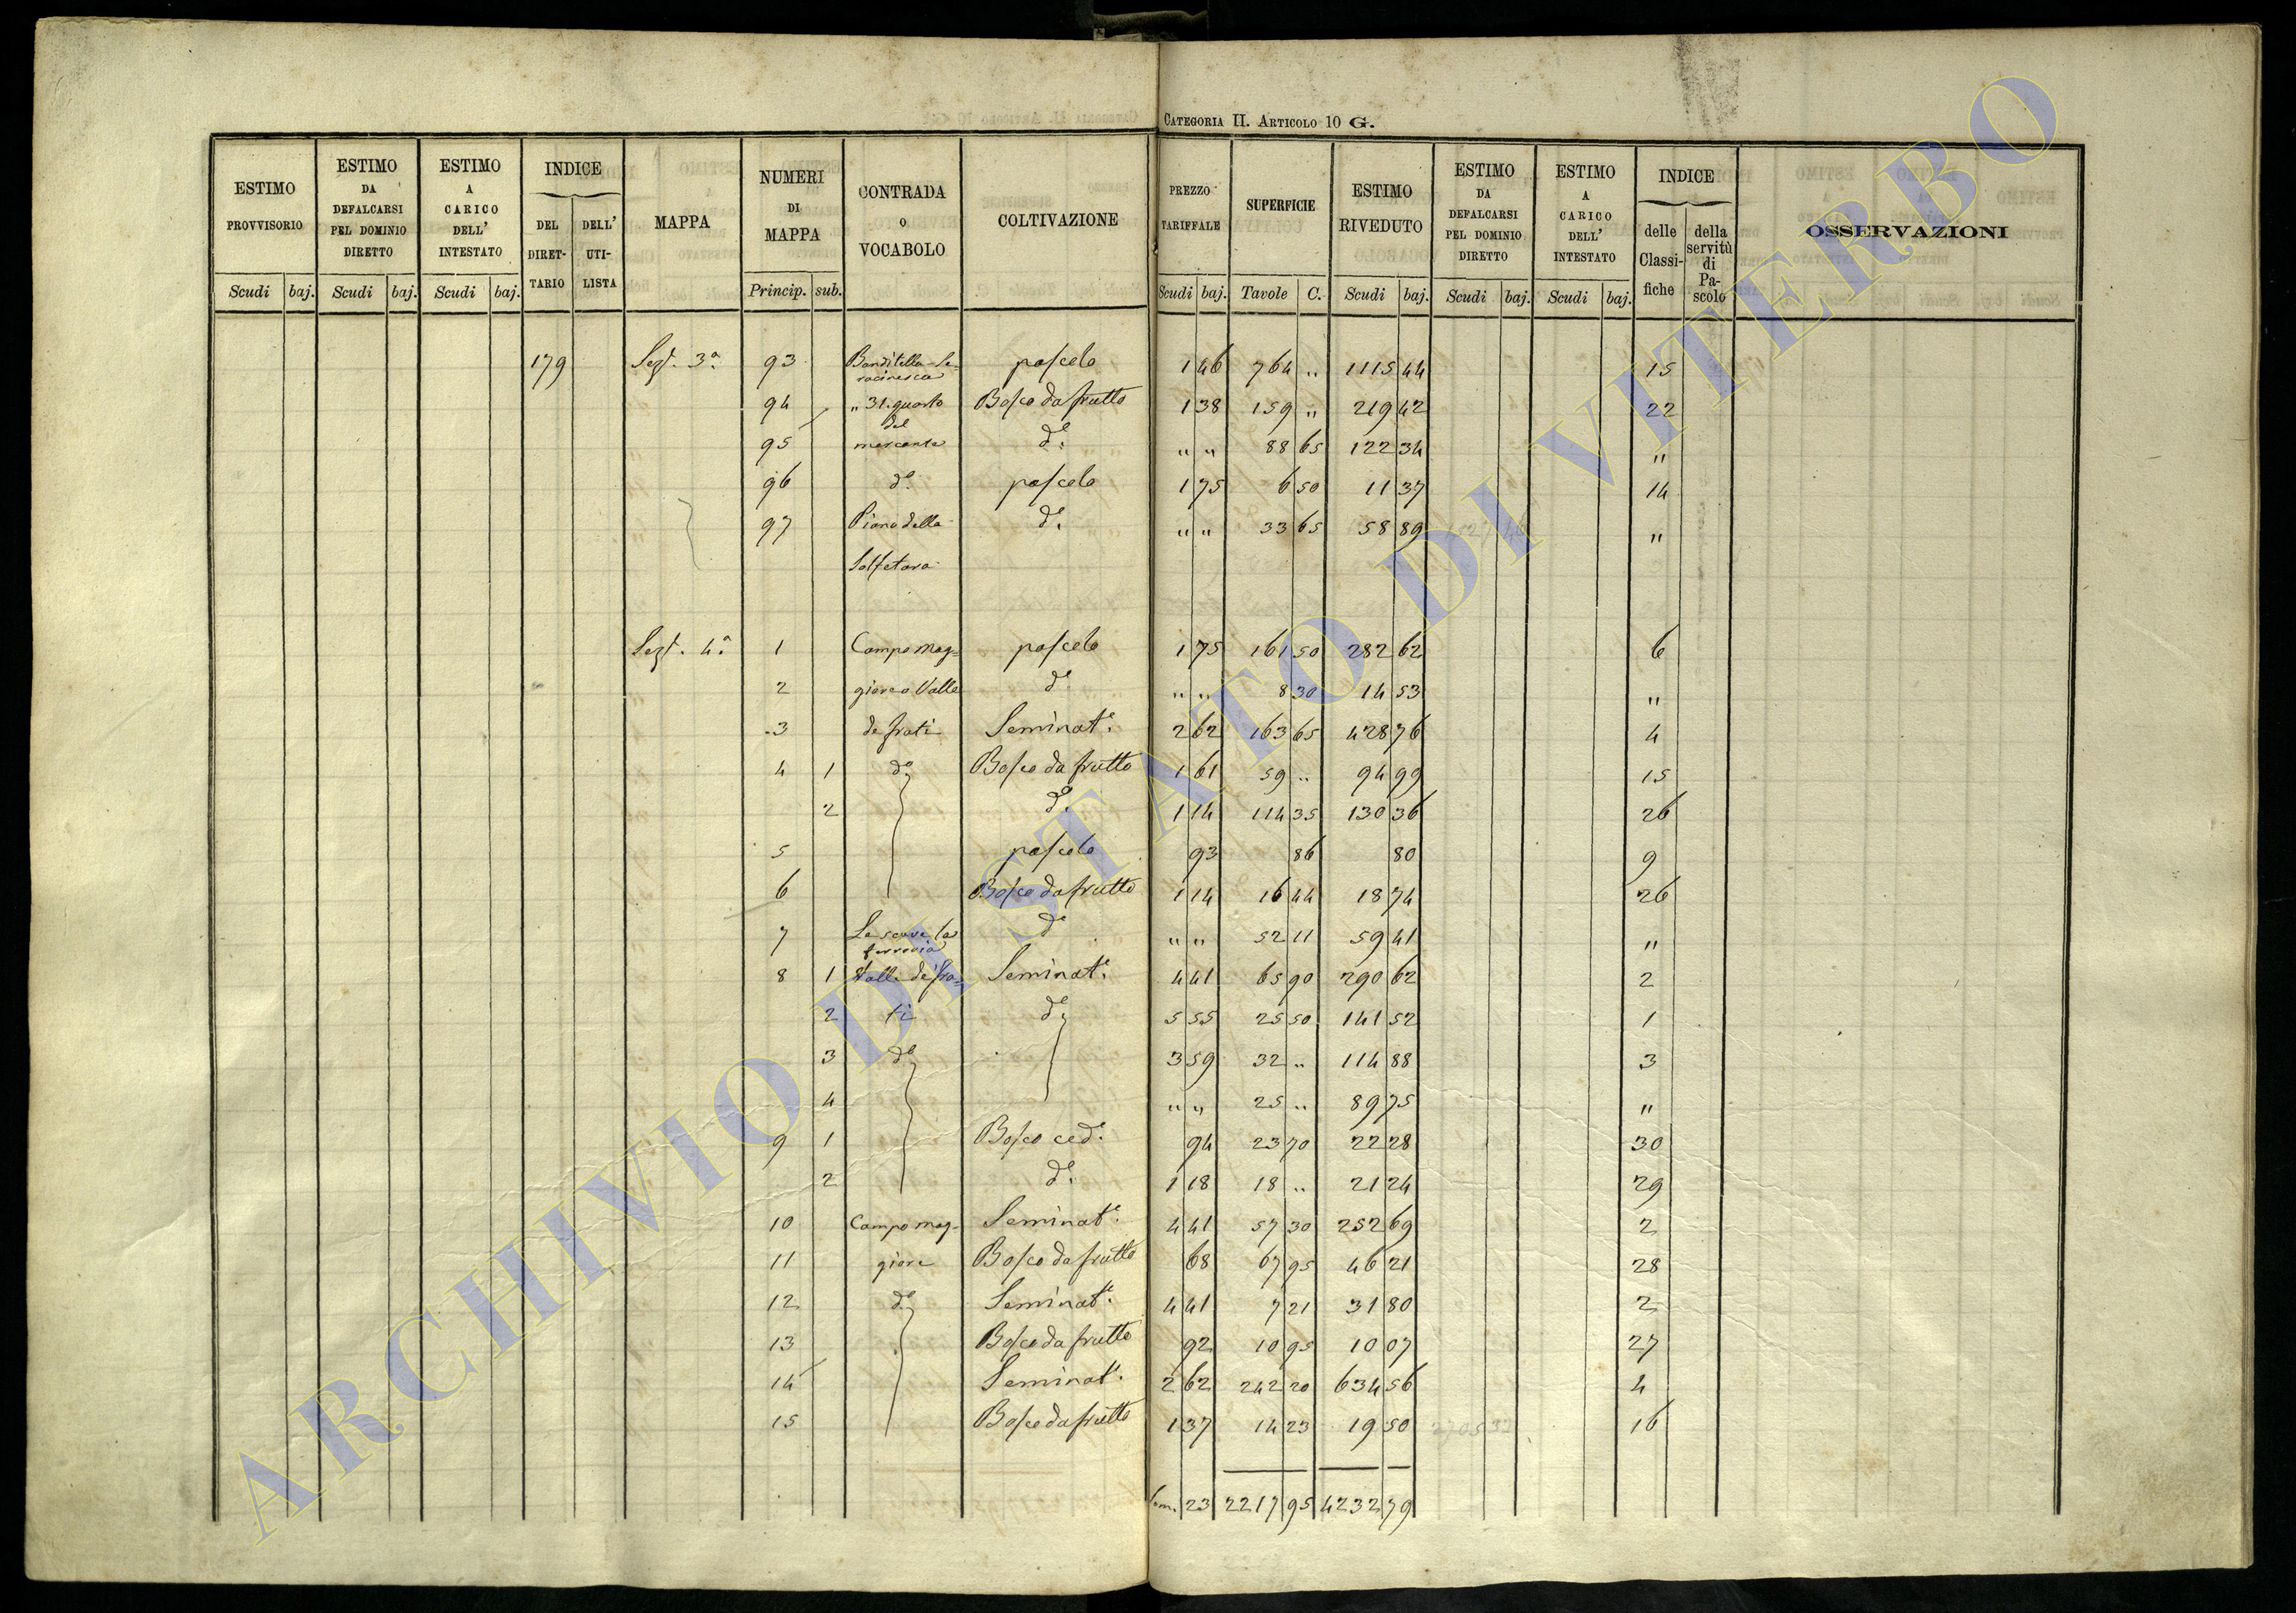 CATEGORIA II. ARTICOLO 10 G.
ESTIMO PROVVISORIO | ESTIMO DA DEFALCARSI PEL DOMINIO DIRETTO | ESTIMO A CARICO DELL' INTESTATO | INDICE DEL DIRETTARIO | DELL' UTILISTA | MAPPA | NUMERI DI MAPPA | CONTRADA O VOCABOLO | COLTIVAZIONE | PREZZO TARIFFALE | SUPERFICIE | ESTIMO RIVEDUTO | ESTIMO DA DEFALCARSI PEL DOMINIO DIRETTO | ESTIMO A CARICO DELL' INTESTATO | INDICE delle Classifiche | della servitù di Pascolo | OSSERVAZIONI
Scudi baj. Scudi baj. Scudi baj. Princip. sub. Scudi baj. Tavole C. Scudi baj. Scudi baj. Scudi baj.
179 Sezt. 3a 93 Banditella Saracinesca pascolo 1 46 764 " 1115 44 15
94 " 31. quarto Bosco da frutto 1 38 159 " 219 42 22
95 del mercante do " " 88 65 122 34 "
96 do pascolo 1 75 6 50 11 37 14
97 Piano della do " " 33 65 58 89 "
Solfetara
Sezt. 4a 1 Campo mag= pascolo 1 75 161 50 282 62 6
2 giore o Valle do " " 8 30 14 53 "
3 de frati Seminat. 2 62 163 65 428 76 4
4 1 do Bosco da frutto 1 61 59 " 94 99 15
2 do 1 14 114 35 130 36 26
5 pascolo 93 86 80 9
6 Bosco da frutto 1 14 16 44 18 74 26
7 do " " 52 11 59 41 "
8 1 Valle de' fra= Seminat. 4 41 65 90 290 62 2
2 ti do 5 55 25 50 141 52 1
3 do 3 59 32 " 114 88 3
4 " " 25 " 89 75 "
9 1 Bosco ced. 94 23 70 22 28 30
2 do 1 18 18 " 21 24 29
10 Campo mag- Seminat. 4 41 57 30 252 69 2
11 giore Bosco da frutto 68 67 95 46 21 28
12 do Seminat. 4 41 7 21 31 80 2
13 Bosco da frutto 92 10 95 10 07 27
14 Seminat. 2 62 242 20 634 56 4
15 Bosco da frutto 1 37 14 23 19 50 16
Som. 23 2217 95 4232 79
ARCHIVIO DI STATO DI VITERBO